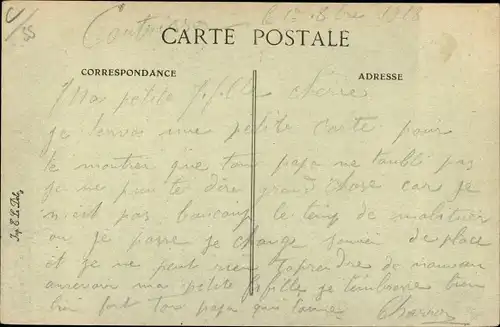 4/35
le 1er 8bre 1918
CARTE POSTALE
CORRESPONDANCE
ADRESSE
Ma petite fifille chérie
je t'envoi une petite carte pour
te montrer que ton papa ne t'oubli pas
je ne peu te dire grand chose car je
n'est pas baucoup le temp de
ou je passe je change souvien de place
et je ne peut rien t'aprendre de nouveau
arrevoir ma petite fifille je t'embrasse bien
bien fort ton papa qui t'aime